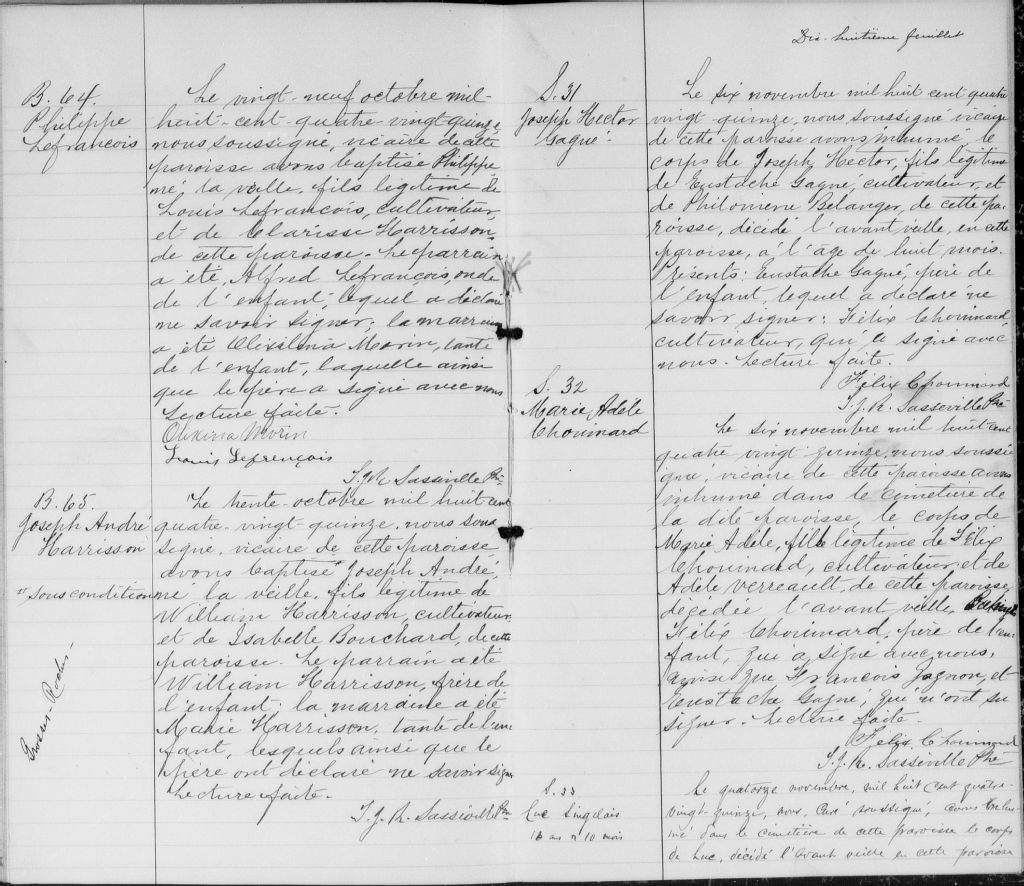 B. 64.
Philippe
Lefrancois
Le vingt-neuf octobre mil-
huit-cent-quatre-vingt quinze
nous soussigné, vicaire de cette
paroisse avons baptisé Philippe
né la veille, fils légitime de
Louis Lefrançois, cultivateur,
et de Clarisse Harrisson
de cette paroisse. Le parrain
a été Alfred Lefrançois, oncle
de l'enfant, lequel a déclaré
ne savoir signer; la marraine
a été Olivina Morin, tante
de l'enfant, laquelle ainsi
que le père a signé avec nous
Lecture faite.
Olixina Morin
Louis Lefrençois
T.J.R. Sasseville Ptre
B. 65.
Joseph André
Harrisson
sous condition
Grosses-Roches-
Le trente octobre mil huit cent
quatre-vingt-quinze, nous sous
signé, vicaire de cette paroisse
avons baptisé Joseph André,
né la veille, fils légitime de
William Harrisson, cultivateur
et de Isabelle Bouchard, de cette
paroisse. Le parrain a été
William Harrisson, frère de
l'enfant; la marraine a été
Marie Harrisson, tante de l'en
fant, lesquels ainsi que le
père ont déclaré ne savoir signer
Lecture faite.
T.J.R. Sasseville Ptre
Dix-huitième feuillet
S. 31
Joseph Hector
Gagné.
Le six novembre mil huit cent quatre
vingt quinze, nous soussigné vicaire
de cette paroisse avons inhumé le
corps de Joseph Hector, fils légitime
de Eustache Gagné, cultivateur, et
de Philomène Belanger, de cette pa-
roisse, décédé l'avant veille, en cette
paroisse, à l'âge de huit mois.
Présents: Eustache Gagné, père de
l'enfant, lequel a déclaré ne
savoir signer: Félix Chouinard,
cultivateur, qui a signé avec
nous. Lecture faite.
Félix Chouinard
T.J.R. Sasseville Ptre
S. 32
Marie Adèle
Chouinard
Le six novembre mil huit cent
quatre vingt quinze, nous soussi
gné, vicaire de cette paroisse avons
inhumé dans le cimetière de
la dite paroisse, le corps de
Marie Adèle, fille légitime de Félix
Chouinard, cultivateur, et de
Adèle Verreault, de cette paroisse,
dégédée l'avant veille,
Félix Chouinard, père de l'en-
fant, qui a signé avec nous,
ainsi que François Gagnon, et
Eustache Gagné, qui n'ont su
signer. Lecture faite.
Felix Chouinard
T.J.R. Sasseville Ptre
S. 33
Luc Singelais
ans 10 mois
Le quatorze novembre, mil huit cent quatre-
vingt-quinze, nous, Curé soussigné, avons inhu-
mé dans le cimetière de cette paroisse le corps
de Luc, décédé l'avant veille en cette paroisse